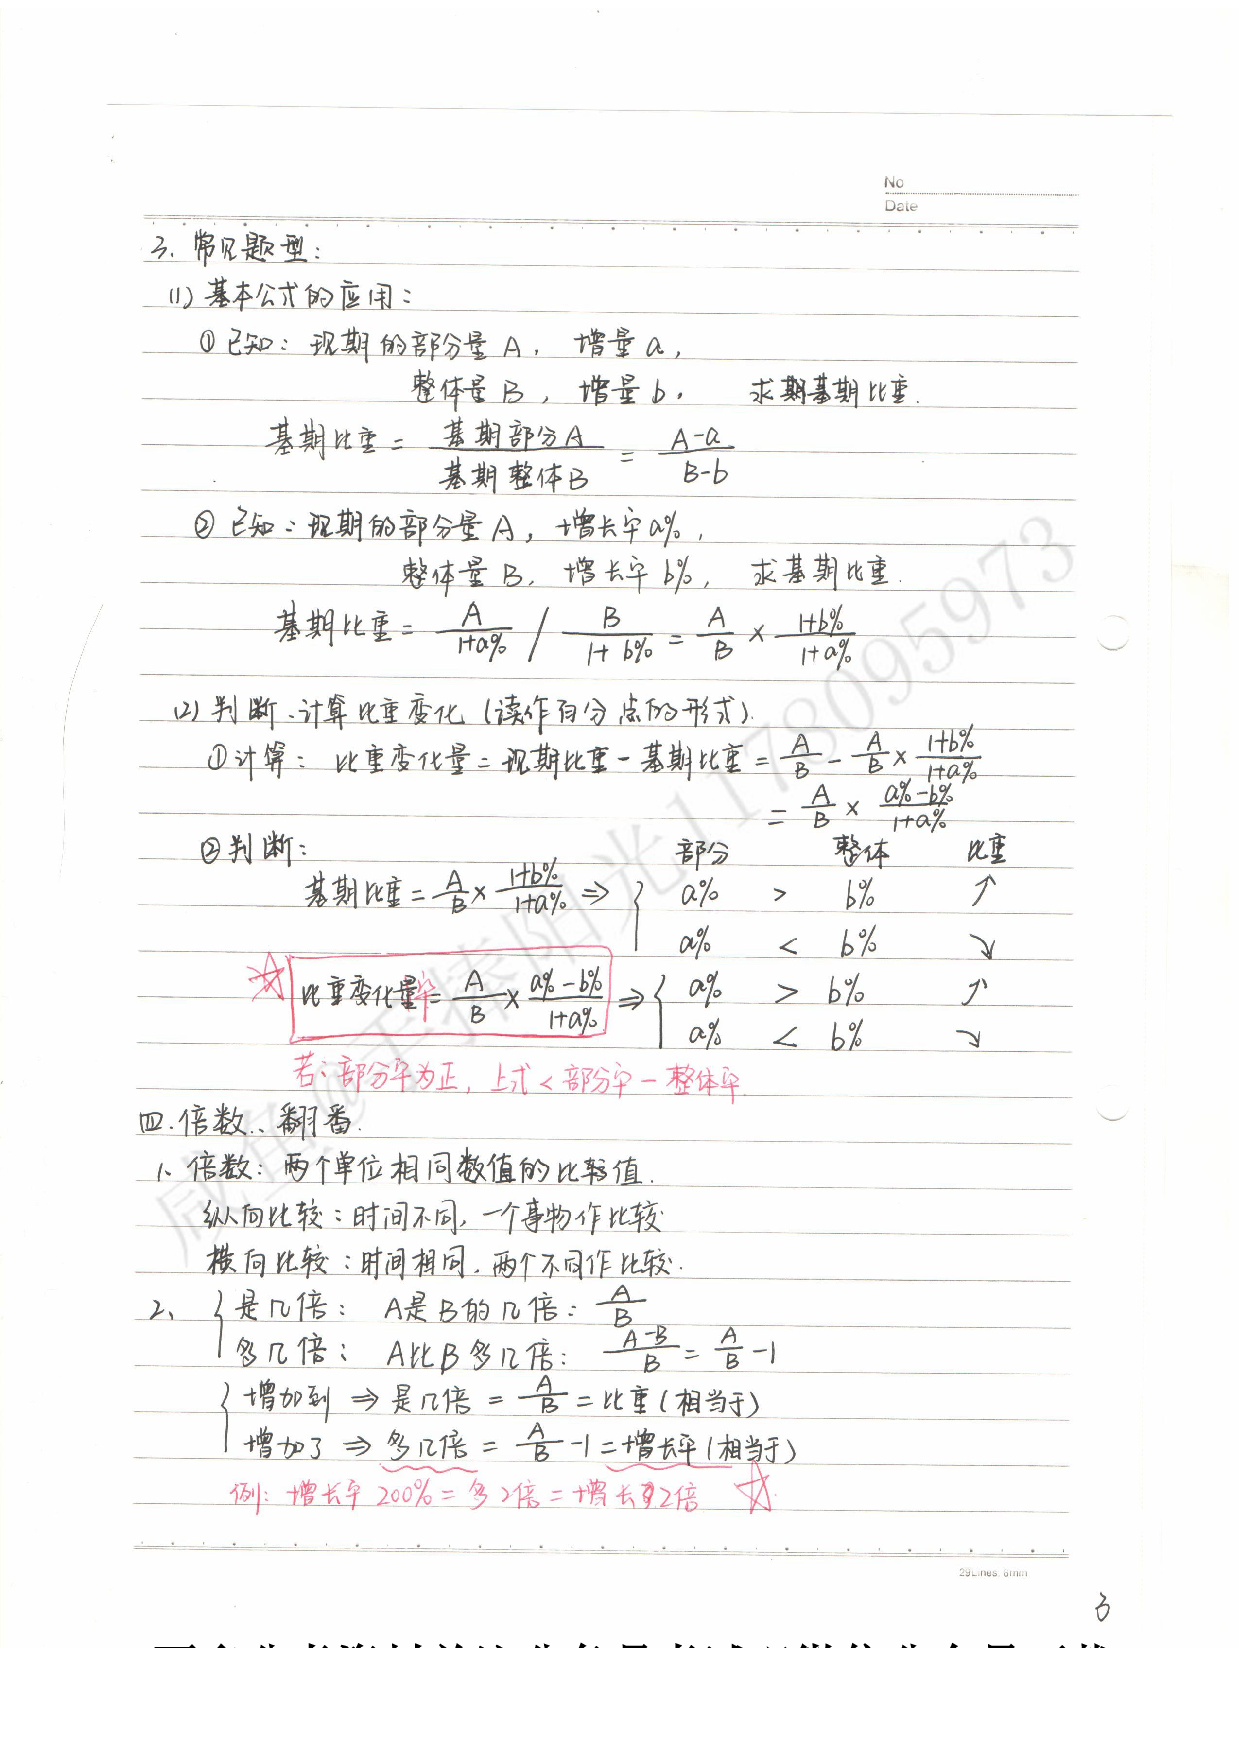 No
Date
3、常见题型：
(1) 基本公式的应用：
①已知：现期的部分量A，增量a，
整体量B，增量b， 求期基期比重.
基期比重 = 基期部分A / 基期整体B = (A-a) / (B-b)
②已知：现期的部分量A，增长率a%，
整体量B，增长率b%， 求基期比重.
基期比重 = A/(1+a%) / B/(1+b%) = A/B × (1+b%)/(1+a%)
(2) 判断、计算比重变化（读作百分点的形式）.
①计算：比重变化量 = 现期比重 - 基期比重 = A/B - A/B × (1+b%)/(1+a%)
= A/B × (a%-b%)/(1+a%)
②判断： 部分 整体 比重
基期比重 = A/B × (1+b%)/(1+a%) ⇒ { a% > b% ↑
a% < b% ↘
☆ 比重变化量 = A/B × (a%-b%)/(1+a%) ⇒ { a% > b% ↑
a% < b% ↘
若：部分率为正，上式 < 部分率 - 整体率
四. 倍数、翻番.
1、倍数：两个单位相同数值的比较值.
纵向比较：时间不同，一个事物作比较
横向比较：时间相同，两个不同作比较.
2、{ 是几倍： A是B的几倍： A/B
多几倍： A比B多几倍： (A-B)/B = A/B - 1
{ 增加到 ⇒ 是几倍 = A/B = 比重（相当于）
增加了 ⇒ 多几倍 = A/B - 1 = 增长率（相当于）
例：增长率 200% = 多2倍 = 增长了2倍 ☆
29Lines. 8mm
3
咸鱼@手捧阳光1178095973